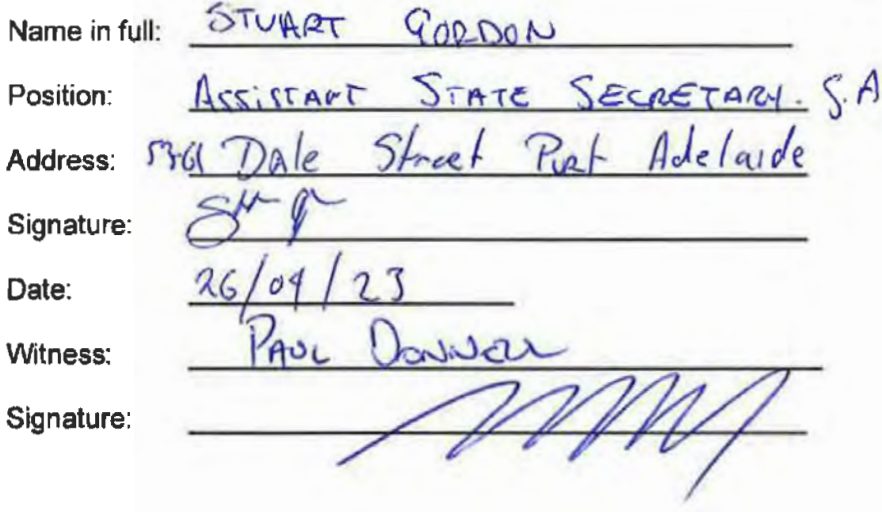 Name in full: STUART GORDON
Position: ASSISTANT STATE SECRETARY. S.A
Address: 53-61 Dale Street Port Adelaide
Signature:
Date: 26/04/23
Witness: PAUL DONNELL
Signature: